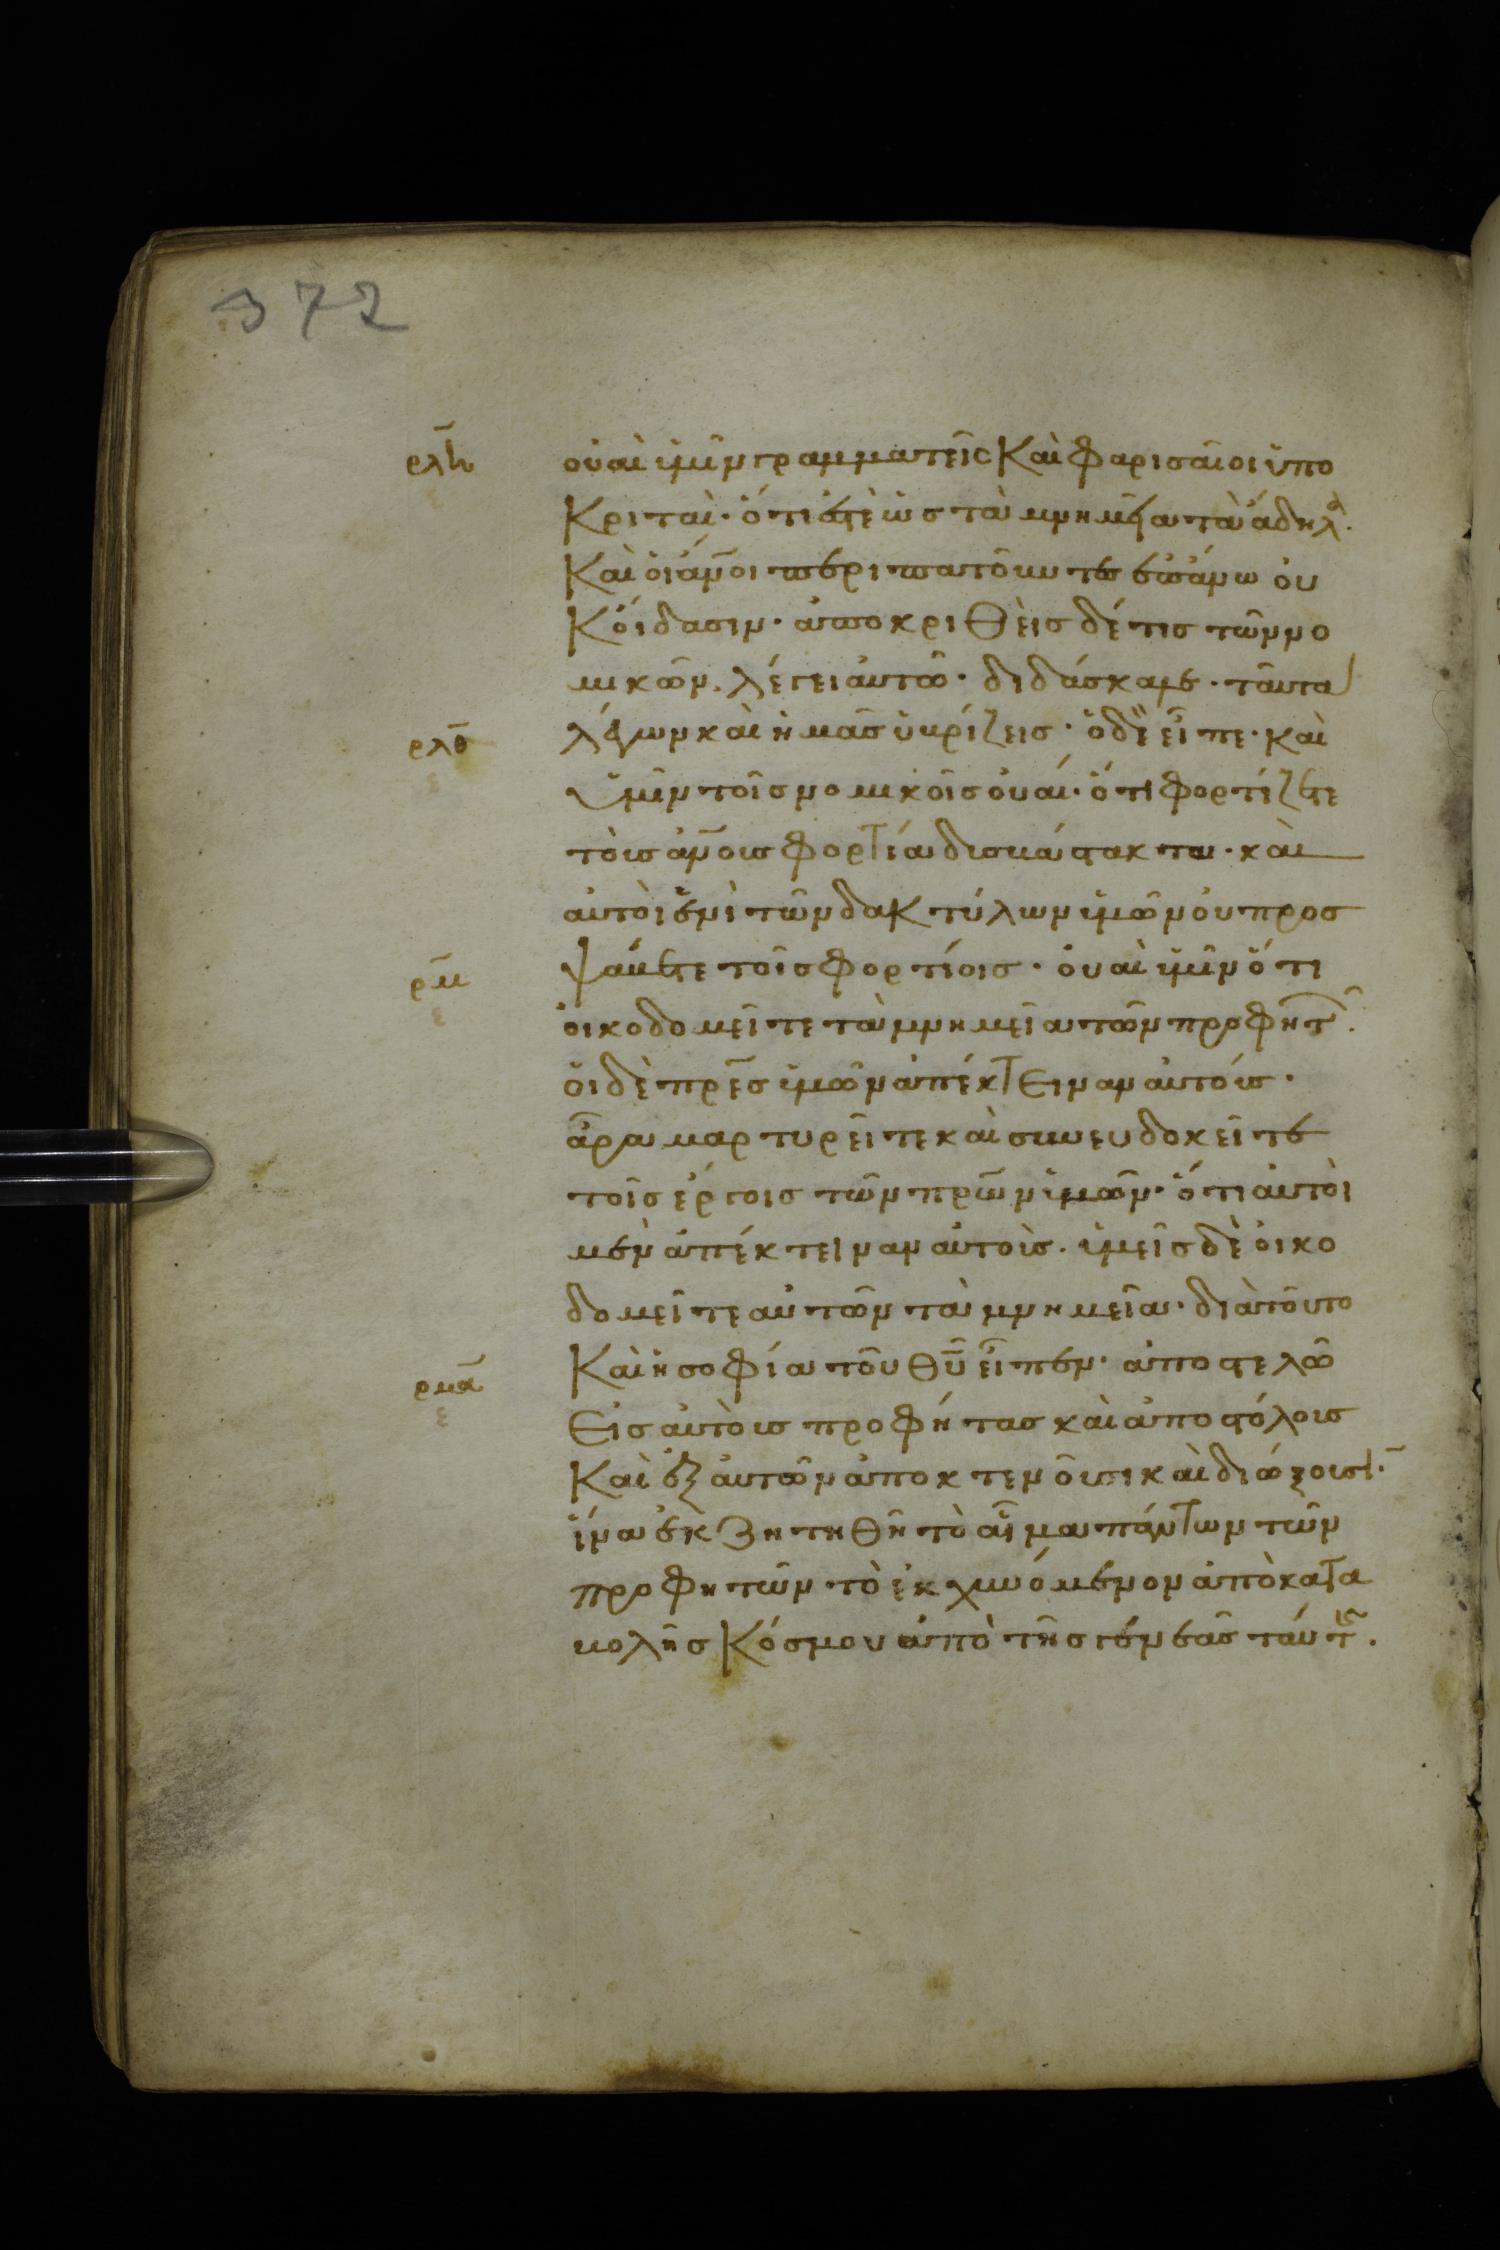 372
ρλη οὐαὶ ὑμῖν γραμματεῖς Καὶ φαρισαῖοι ὑπο
Κριταὶ· ὅτι ἐστὲ ὡς τὰ μνημεῖα τὰ ἄδηλα·
Καὶ οἱ ἄνοι περιπατοῦντες ἐπάνω οὐ
Κ οἴδασιν· ἀποκριθεὶς δέ τις τῶν νο
μικῶν. λέγει αὐτῶ· διδάσκαλε· ταῦτα
ρλθ λέγων καὶ ἡμᾶς ὑβρίζεις· ὁ δὲ εἶπε· καὶ
ε ὑμῖν τοῖς νομικοῖς οὐαί· ὅτι φορτίζετε
τοὺς ἀνους φορτία δυσβάστακτα· καὶ
αὐτοὶ ἑνὶ τῶν δαΚτύλων ὑμῶν οὐ προσ
ρμ ψαύετε τοῖς φορτίοις· οὐαὶ ὑμῖν ὅτι
ε οἰκοδομεῖτε τὰ μνημεῖα τῶν προφητ·
οἱ δὲ πρες ὑμῶν ἀπέκτειναν αὐτούς·
ἆρα μαρτυρεῖτε καὶ συνευδοκεῖτε
τοῖς ἔργοις τῶν πρων ὑμῶν· ὅτι αὐτοὶ
μὲν ἀπέκτειναν αὐτοὺς· ὑμεῖς δὲ οἰκο
δομεῖτε αὐτῶν τὰ μνημεῖα· διὰ τοῦτο
ρμα Καὶ ἡ σοφία τοῦ θυ εἶπεν· ἀποστελῶ
ε Εἰς αὐτοὺς προφήτας καὶ ἀποστόλους
Καὶ ἐξ αὐτῶν ἀποκτενοῦσι καὶ διώξουσι·
ἵνα ἐκζητηθῆ τὸ αἷμα πάντων τῶν
προφητῶν τὸ ἐκχυνόμενον ἀπὸ κατα
βολῆς Κόσμου ἀπὸ τῆς γενεᾶς ταύτ·